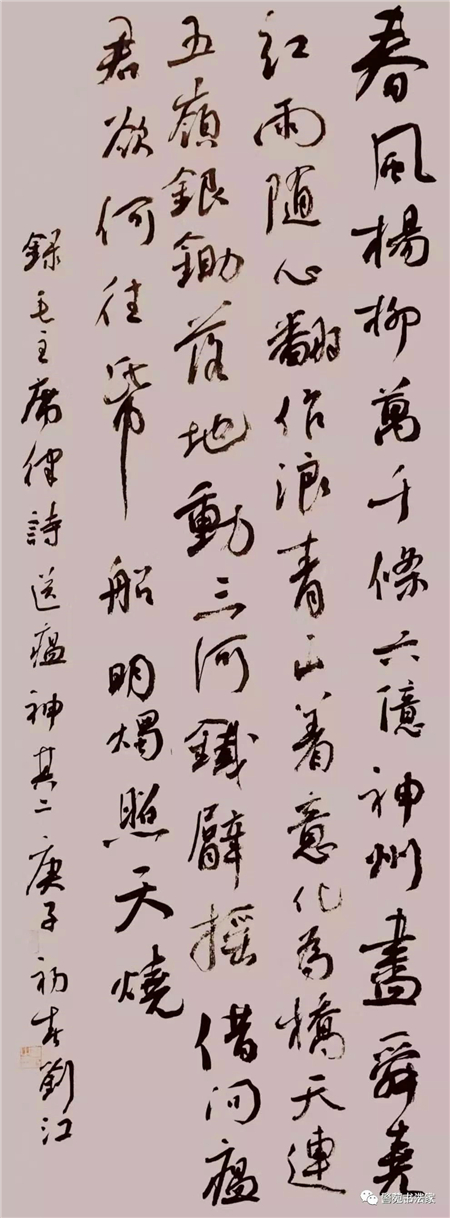 春風楊柳萬千條六億神州盡舜堯
紅雨随心翻作浪青山着意化為橋天連
五嶺銀鋤落地動三河鐵臂摇借问瘟
君欲何往紙船明燭照天燒
録毛主席律詩送瘟神其二庚子初春劉江
警苑书法家